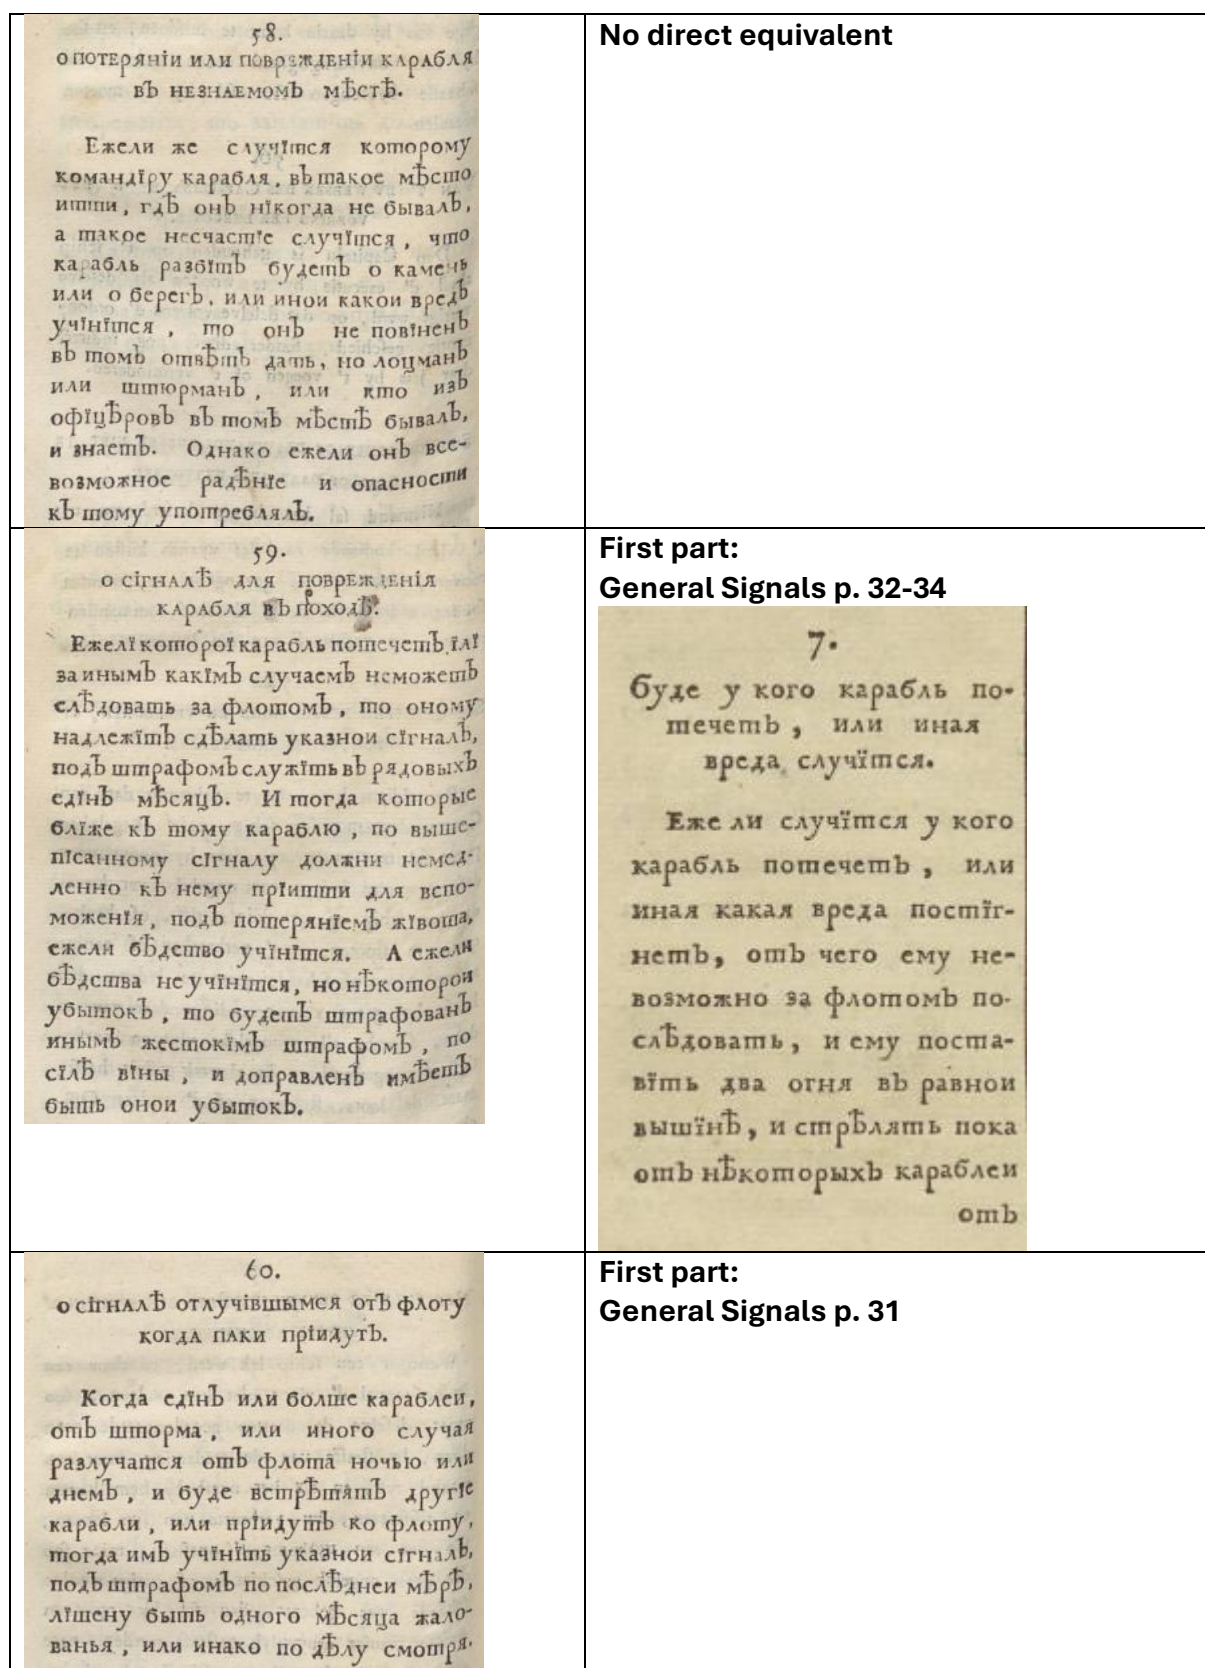 58.
О ПОТЕРЯНІИ ИЛИ ПОВРЕЖДЕНІИ КАРАБЛЯ
ВЪ НЕЗНАЕМОМЪ МѢСТѢ.
Ежели же случїтся которому
командїру карабля, вЪ такое мѢсто
итти, гдѢ онЪ нїкогда не бывалЪ,
а такое несчастїе случїтся, что
карабль разбїтЪ будетЪ о камень
или о берегЪ, или инои какои вредЪ
учїнїтся, то онЪ не повїненЪ
вЪ томЪ отвѢтЪ дать, но лоцманЪ
или штюрманЪ, или кто изЪ
офїцѢровЪ вЪ томЪ мѢстѢ бывалЪ,
и знаетЪ. Однако ежели онЪ все-
возможное радѢнїе и опасности
кЪ тому употреблялЪ.
No direct equivalent
59.
О СІГНАЛѢ ДЛЯ ПОВРЕЖДЕНІЯ
КАРАБЛЯ ВЪ ПОХОДѢ.
Ежелї которої карабль потечетЪ їлї
за инымЪ какїмЪ случаемЪ неможетЪ
слѢдовать за флотомЪ, то оному
надлежїтЪ сдѢлать указнои сїгналЪ,
подЪ штрафомЪ служїть вЪ рядовыхЪ
едїнЪ мѢсяцЪ. И тогда которые
блїже кЪ тому караблю, по выше-
пїсанному сїгналу должни немед-
ленно кЪ нему прїитти для вспо-
моженїя, подЪ потерянїемЪ жївота,
ежели бѢдство учїнїтся. А ежели
бѢдства не учїнїтся, но нѢкоторои
убытокЪ, то будетЪ штрафованЪ
инымЪ жестокїмЪ штрафомЪ, по
сїлѢ вїны, и доправленЪ имѢетЪ
быть онои убытокЪ.
First part:
General Signals p. 32-34
7.
буде у кого карабль по-
течетЪ, или иная
вреда случїтся.
Ежели случїтся у кого
карабль потечетЪ, или
иная какая вреда постїг-
нетЪ, отЪ чего ему не-
возможно за флотомЪ по-
слѢдовать, и ему поста-
вїть два огня вЪ равнои
вышїнѢ, и стрѢлять пока
отЪ нѢкоторыхЪ караблеи
отЪ
60.
О СІГНАЛѢ ОТЛУЧІВШЫМСЯ ОТЪ ФЛОТУ
КОГДА ПАКИ ПРІИДУТЪ.
Когда едїнЪ или болше караблеи,
отЪ шторма, или иного случая
разлучатся отЪ флота ночью или
днемЪ, и буде встрѢтятЪ другїе
карабли, или прїидутЪ ко флоту,
тогда имЪ учїнїть указнои сїгналЪ,
подЪ штрафомЪ по послѢднеи мѢрѢ,
лїшену быть одного мѢсяца жало-
ванья, или инако по дѢлу смотря.
First part:
General Signals p. 31